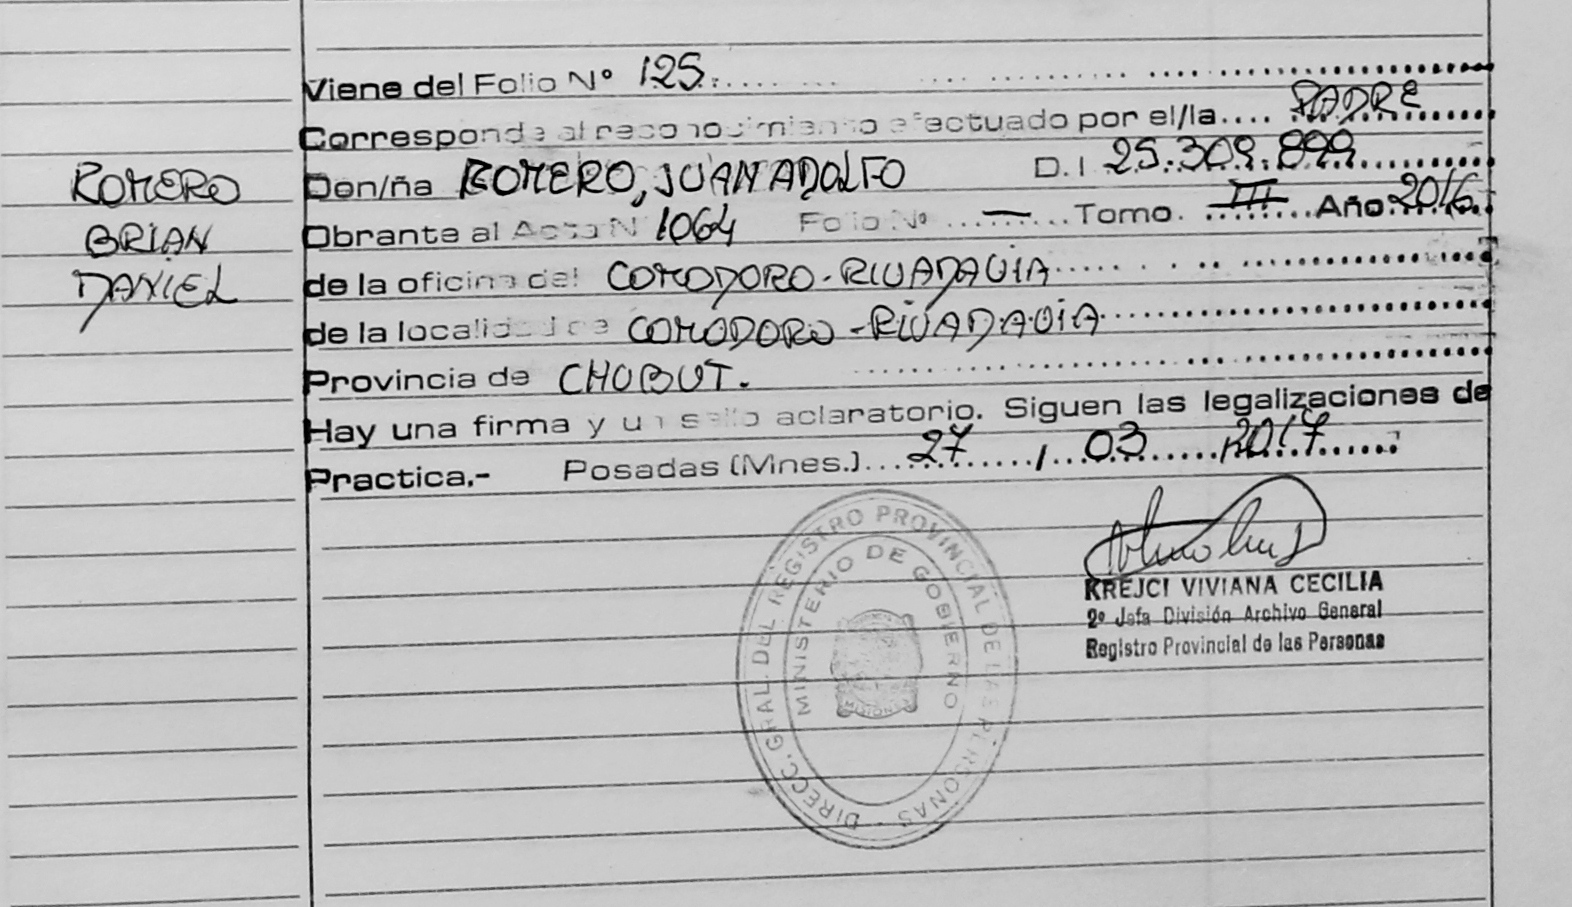 ROMERO
BRIAN
DANIEL
Viene del Folio Nº 125.
Corresponde al reconocimiento efectuado por el/la.... PADRE
Don/ña ROMERO, JUAN ADOLFO D.I 25.309.899
Obrante al Acta N 1064 Folio Nº — Tomo. III Año 2016.
de la oficina del COMODORO-RIVADAVIA
de la localidad de COMODORO-RIVADAVIA
Provincia de CHUBUT.
Hay una firma y un sello aclaratorio. Siguen las legalizaciones de
Practica.- Posadas (Mnes.)... 27 / 03 2017
DIRECC. GRAL. DEL REGISTRO PROVINCIAL DE LAS PERSONAS -
MINISTERIO DE GOBIERNO
MISIONES
KREJCI VIVIANA CECILIA
2º Jefa División Archivo General
Registro Provincial de las Personas